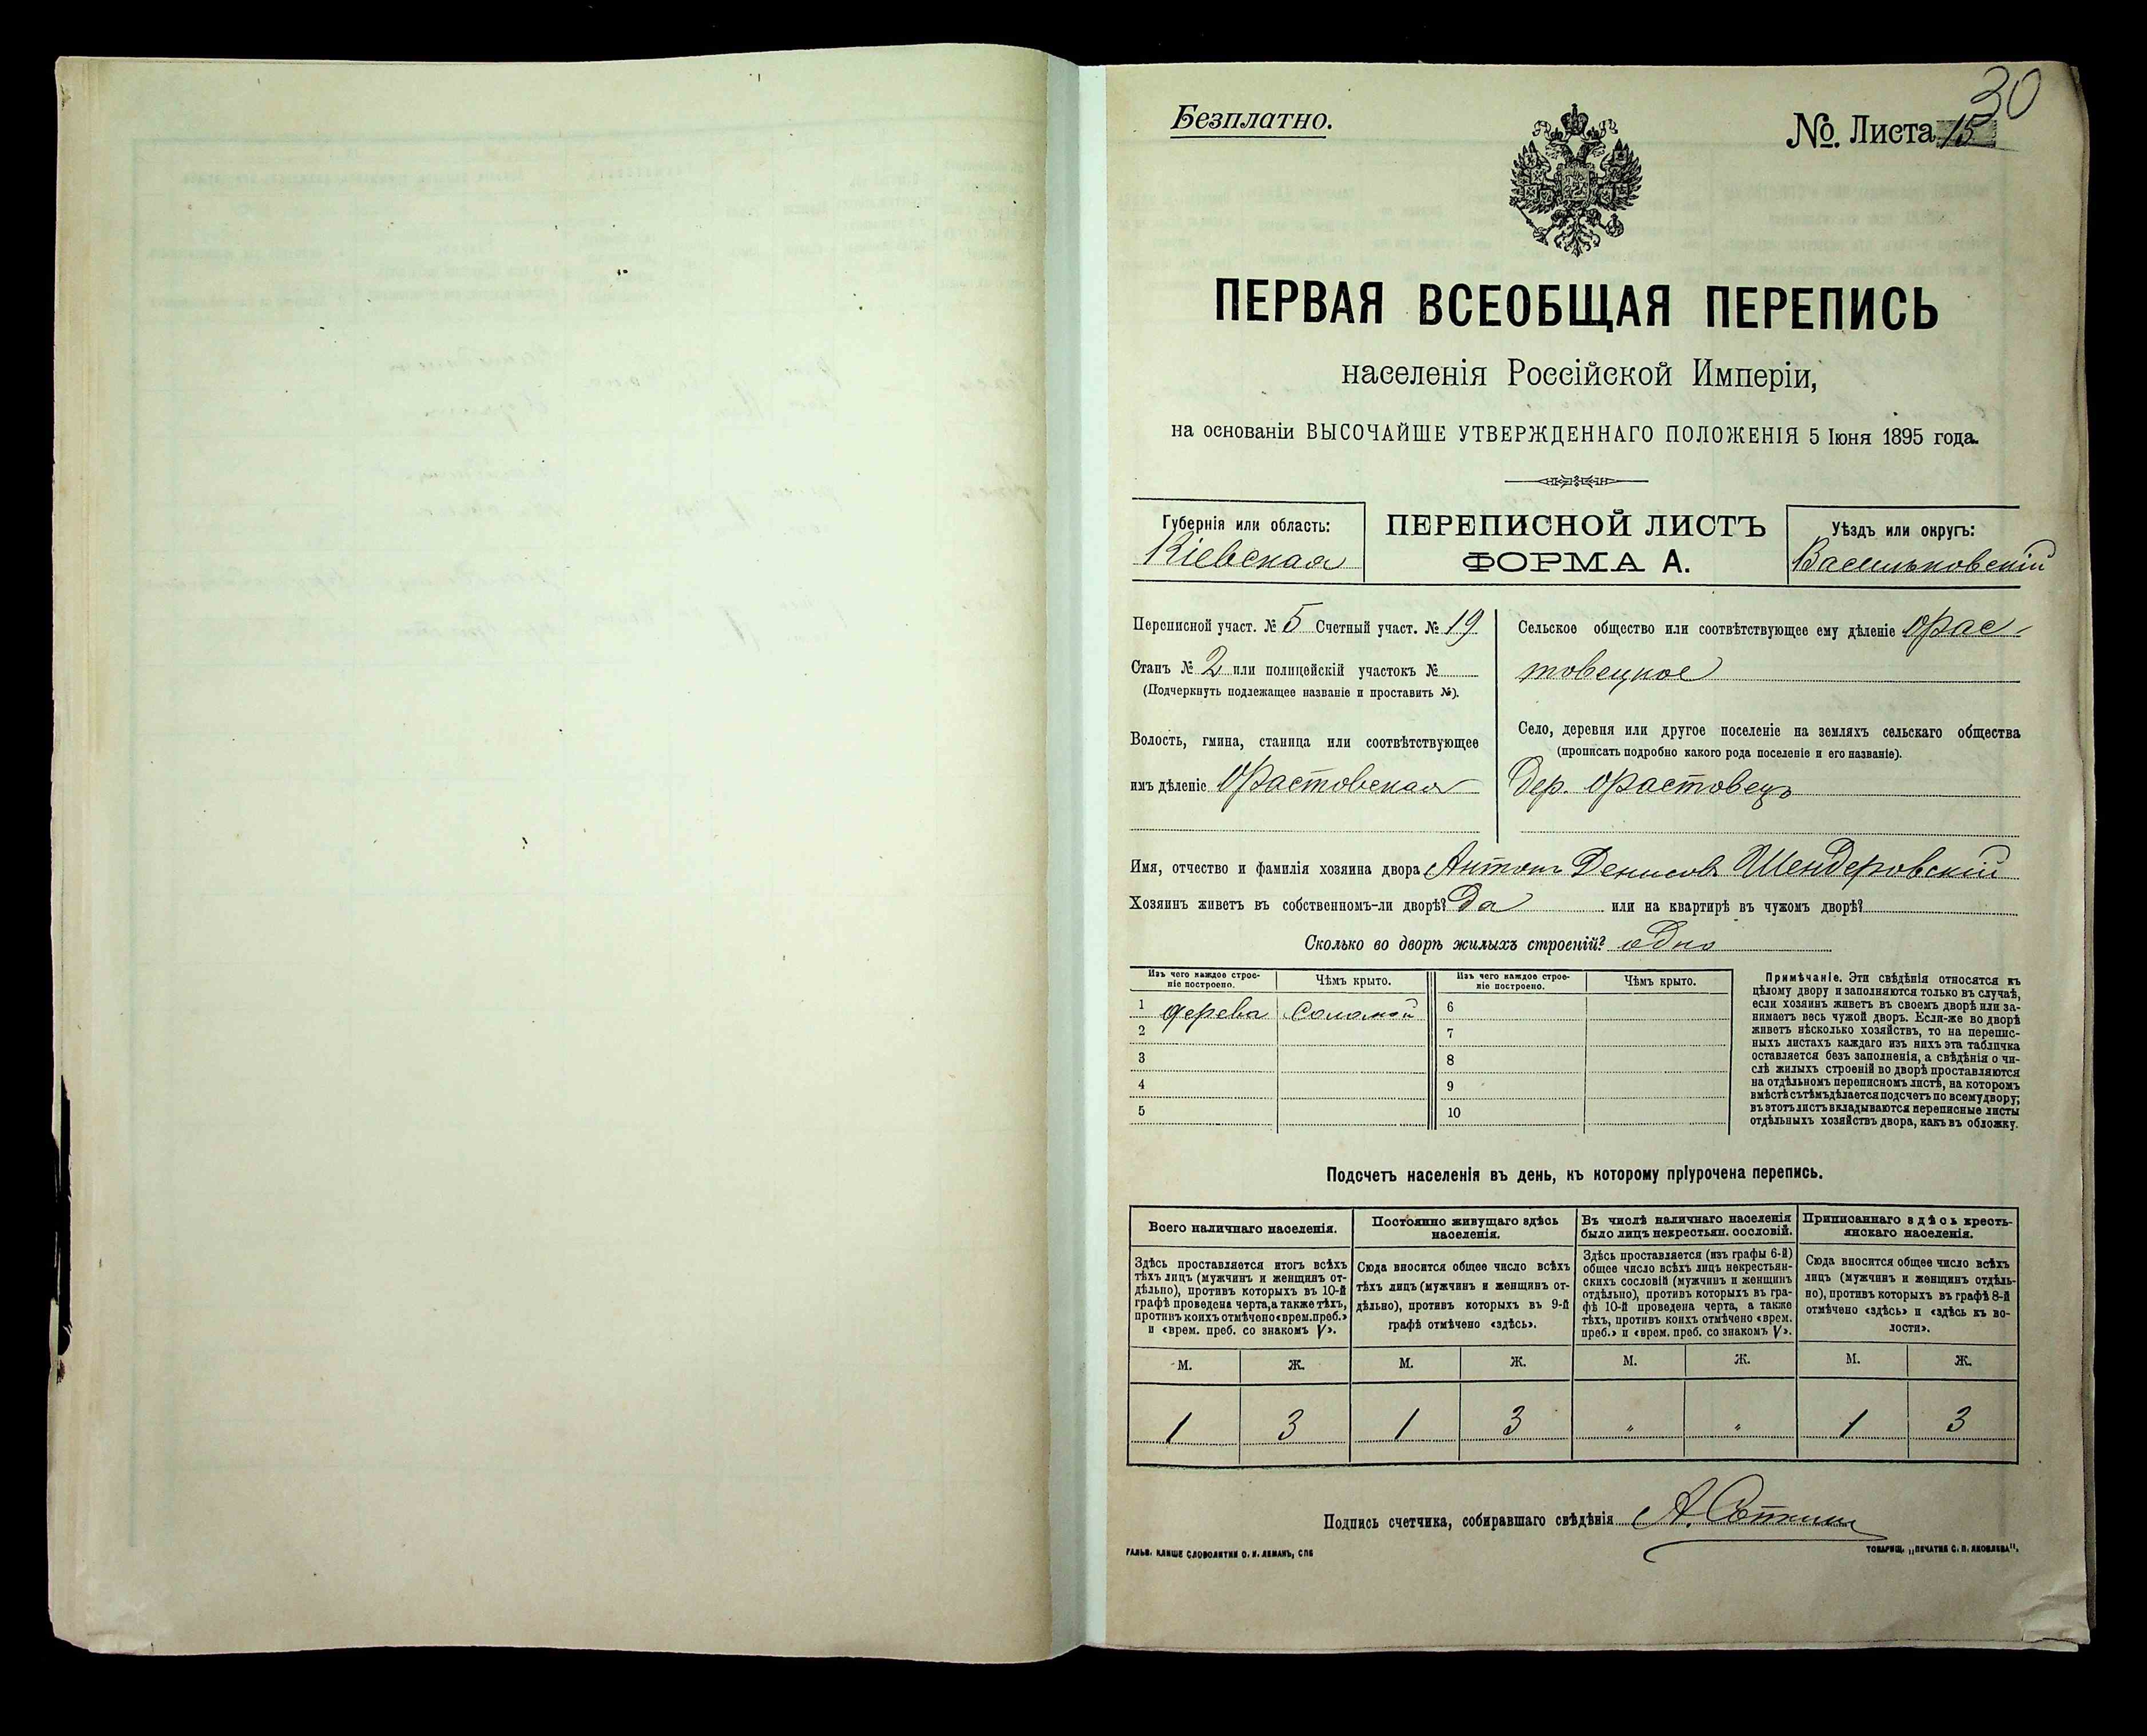 30
Безплатно.
№. Листа 15
ПЕРВАЯ ВСЕОБЩАЯ ПЕРЕПИСЬ
населенія Россійской Имперіи,
на основаніи ВЫСОЧАЙШЕ УТВЕРЖДЕННАГО ПОЛОЖЕНІЯ 5 Іюня 1895 года.
Губернія или область:
Кіевская
ПЕРЕПИСНОЙ ЛИСТЪ
ФОРМА А.
Уѣздъ или округъ:
Васильковскій
Переписной участ. № 5 Счетный участ. № 19
Станъ № 2 или полицейскій участокъ №
(Подчеркнуть подлежащее названіе и проставить №).
Волость, гмина, станица или соотвѣтствующее
имъ дѣленіе Фастовская
Сельское общество или соотвѣтствующее ему дѣленіе Фас-
товецкое
Село, деревня или другое поселеніе на земляхъ сельскаго общества
(прописать подробно какого рода поселеніе и его названіе).
Дер. Фастовецъ
Имя, отчество и фамилія хозяина двора Антонъ Денисовъ Шендеровскій
Хозяинъ живетъ въ собственномъ-ли дворѣ? Да или на квартирѣ въ чужомъ дворѣ?
Сколько во дворѣ жилыхъ строеній? одно
Изъ чего каждое строе-
ніе построено.
Чѣмъ крыто.
Изъ чего каждое строе-
ніе построено.
Чѣмъ крыто.
1 дерева соломой 6
2 7
3 8
4 9
5 10
Примѣчаніе. Эти свѣдѣнія относятся къ
цѣлому двору и заполняются только въ случаѣ,
если хозяинъ живетъ въ своемъ дворѣ или за-
нимаетъ весь чужой дворъ. Если-же во дворѣ
живетъ нѣсколько хозяйствъ, то на перепис-
ныхъ листахъ каждаго изъ нихъ эта табличка
оставляется безъ заполненія, а свѣдѣнія о чи-
слѣ жилыхъ строеній во дворѣ проставляются
на отдѣльномъ переписномъ листѣ, на которомъ
вмѣстѣ съ тѣмъ дѣлается подсчетъ по всему двору;
въ этотъ листъ вкладываются переписные листы
отдѣльныхъ хозяйствъ двора, какъ въ обложку.
Подсчетъ населенія въ день, къ которому пріурочена перепись.
Всего наличнаго населенія.
Здѣсь проставляется итогъ всѣхъ
тѣхъ лицъ (мужчинъ и женщинъ от-
дѣльно), противъ которыхъ въ 10-й
графѣ проведена черта, а также тѣхъ,
противъ коихъ отмѣчено «врем. преб.»
и «врем. преб. со знакомъ V».
Постоянно живущаго здѣсь
населенія.
Сюда вносится общее число всѣхъ
тѣхъ лицъ (мужчинъ и женщинъ от-
дѣльно), противъ которыхъ въ 9-й
графѣ отмѣчено «здѣсь».
Въ числѣ наличнаго населенія
было лицъ некрестьян. сословій.
Здѣсь проставляется (изъ графы 6-й)
общее число всѣхъ лицъ некрестьян-
скихъ сословій (мужчинъ и женщинъ
отдѣльно), противъ которыхъ въ гра-
фѣ 10-й проведена черта, а также
тѣхъ, противъ коихъ отмѣчено «врем.
преб.» и «врем. преб. со знакомъ V».
Приписаннаго здѣсь кресть-
янскаго населенія.
Сюда вносится общее число всѣхъ
лицъ (мужчинъ и женщинъ отдѣль-
но), противъ которыхъ въ графѣ 8-й
отмѣчено «здѣсь» и «здѣсь къ во-
лости».
М. Ж. М. Ж. М. Ж. М. Ж.
1 3 1 3 " " 1 3
Подпись счетчика, собиравшаго свѣдѣнія А.
ГАЛЬВ. КЛИШЕ СЛОВОЛИТНИ О. И. ЛЕМАНЪ, СПБ
ТОВАРИЩ. „ПЕЧАТНЯ С. П. ЯКОВЛЕВА".